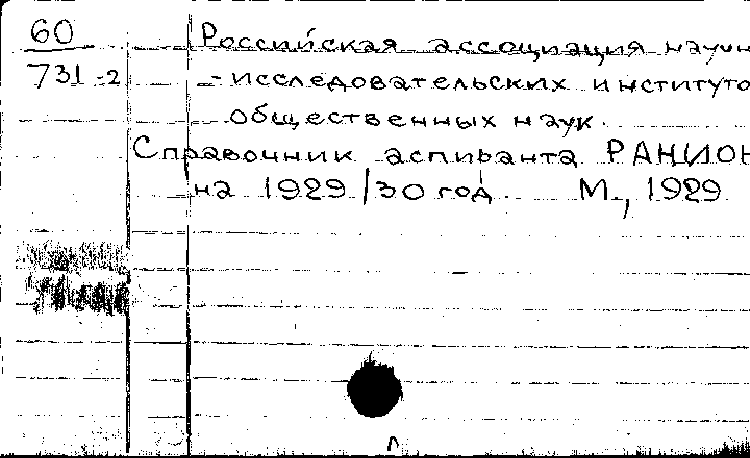 60 Российская ассоциация научн
731-2 -исследовательских институто
общественных наук.
Справочник аспиранта РАНИОН
на 1929/30 год. М., 1929